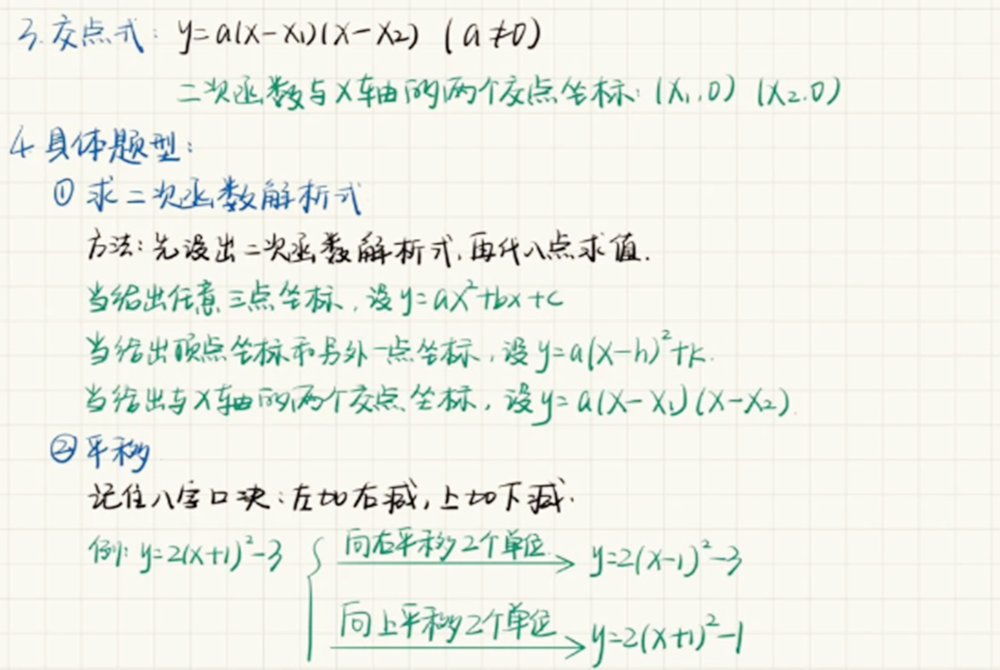 3.交点式：y=a(x-x₁)(x-x₂) (a≠0)
二次函数与x轴的两个交点坐标：(x₁,0) (x₂,0)
4.具体题型：
①求二次函数解析式
方法：先设出二次函数解析式,再代入点求值.
当给出任意三点坐标,设y=ax²+bx+c
当给出顶点坐标和另外一点坐标,设y=a(x-h)²+k.
当给出与x轴的两个交点坐标,设y=a(x-x₁)(x-x₂).
②平移
记住八字口决：左加右减,上加下减.
例：y=2(x+1)²-3 { 向右平移2个单位 → y=2(x-1)²-3
向上平移2个单位 → y=2(x+1)²-1